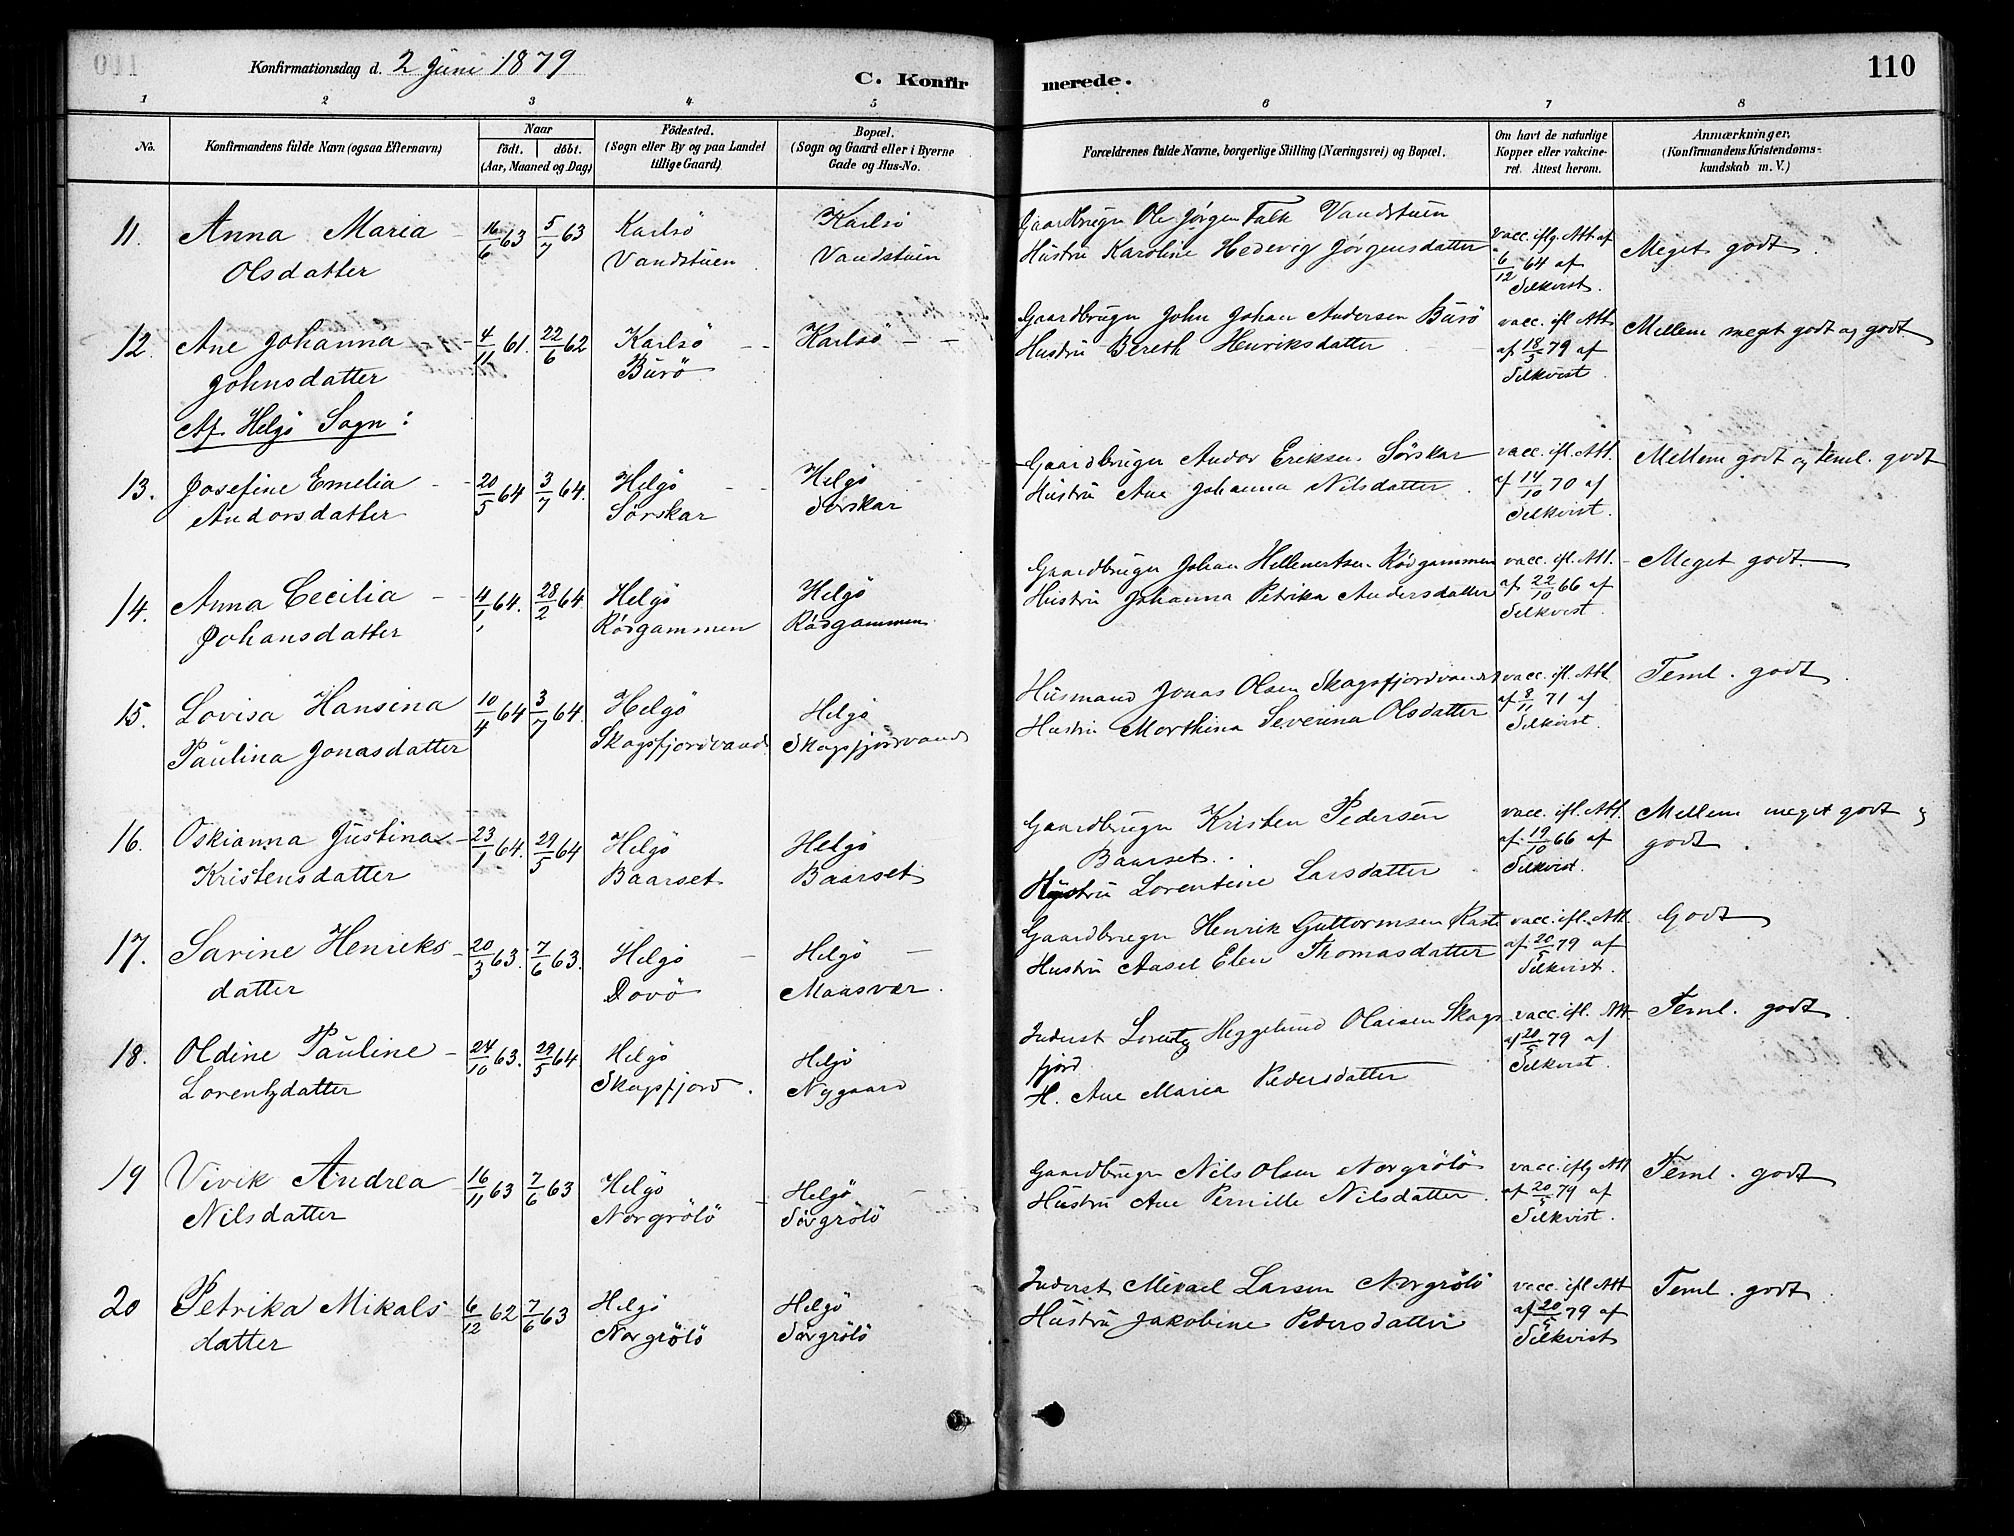 Konfirmationsdag d. 2 Juni 1879
C. Konfirmerede.
110
1 2 3 4 5 6 7 8
No.
Konfirmandens fulde Navn (ogsaa Efternavn)
Naar
födt. döbt.
(Aar, Maaned og Dag)
Födested.
(Sogn eller By og paa Landet
tillige Gaard)
Bopæl.
(Sogn og Gaard eller i Byerne
Gade og Hus-No.
Forældrenes fulde Navne, borgerlige Stilling (Næringsvei) og Bopæl.
Om havt de naturlige
Kopper eller vakcine-
ret. Attest herom.
Anmærkninger.
(Konfirmandens Kristendoms-
kundskab m. V.)
11. Anna Maria 16/6 63 5/7 63 Karlsö Karlsö Gaardbruger Ole Jörgen Falk Vandstuen vacc. iflg. Att af Meget godt.
Olsdatter Vandstuen Vandstuen Hustru Karoline Hedevig Jörgensdatter 6/12 64 af
Silkvist.
12. Ane Johanna 4/11 61. 22/6 62 Karlsö Karlsö Gaardbruger John Johan Andersen Burö vacc. ifl Att. Mellem meget godt og godt
Johnsdatter Burö Hustru Bereth Henriksdatter af 18/5 79 af
Silkvist
Af Helgö Sogn:
13. Josefine Emelia 20/5 64 3/7 64. Helgö Helgö Gaardbruger Andor Eriksen Sörskar vacc. ifl. Att. Mellem godt og teml. godt
Andorsdatter Sörskar Sörskar Hustru Ane Johanna Nilsdatter af 14/10 70 af
Silkvist.
14. Anna Cecilia 4/1 64. 28/2 64. Helgö Helgö Gaardbruger Johan Hellenertsen Rödgammen vacc. ifl. Att. Meget godt.
Johansdatter Rödgammen Rödgammen Hustru Johanna Petrika Andersdatter af 22/10 66 af
Silkvist
15. Lovisa Hansina 10/4 64 3/7 64. Helgö Helgö Husmand Jonas Olsen Skogsfjordvand vacc. ifl. Att. Teml. godt.
Paulina Jonasdatter Skogsfjordvand Skogsfjordvand Hustru Morthina Severina Olsdatter af 8/11 71 af
Silkvist.
16. Oskianna Justina 23/1 64. 29/5 64 Helgö Helgö Gaardbruger Kristen Pedersen vacc. ifl. Att. Mellem meget godt og
Kristensdatter Baarset Baarset Baarset. af 19/10 66 af godt.
Hustru Lorentine Larsdatter Silkvist.
17. Sarine Henriks 20/3 63. 7/6 63. Helgö Helgö Gaardbruger Henrik Guttormsen Rast vacc. ifl. Att. Godt
datter Dovö Maasvær. Hustru Aasel Elen Thomasdatter af 20/5 79 af
Silkvist.
18. Oldine Pauline 24/10 63. 29/5 64. Helgö Helgö Inderst Lorentz Heggelund Olaisen Skogs vacc. ifl. Att Teml. godt
Lorentzdatter Skogsfjord. Nygaard fjord. af 20/5 79 af
H. Ane Maria Pedersdatter Silkvist.
19 Vivik Andrea 16/11 63 7/6 63 Helgö Helgö Gaardbruger Nils Olsen Norgrölö vacc. iflg Att Teml. godt
Nilsdatter Norgrölö Sörgrölö Hustru Ane Pernille Nilsdatter. af 20/5 79 af
Silkvist.
20 Petrika Mikals 6/12 62 7/6 63 Helgö Helgö Inderst Mikael Larsen Norgrölö vacc. ifl Att Teml. godt.
datter Norgrölö Sörgrölö Hustru Jakobine Pedersdatter af 20/5 79 af
Silkvist